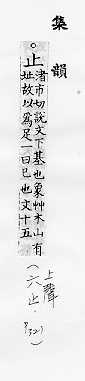 集韻
○止
渚市切說文下基也象艸木出有
址故以爲足一曰已也文十五
(上聲 六止. P321)